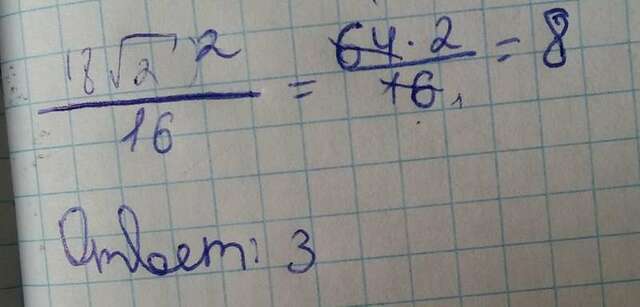 (8√2)² / 16 = 64·2 / 16 = 8
Ответ: 3